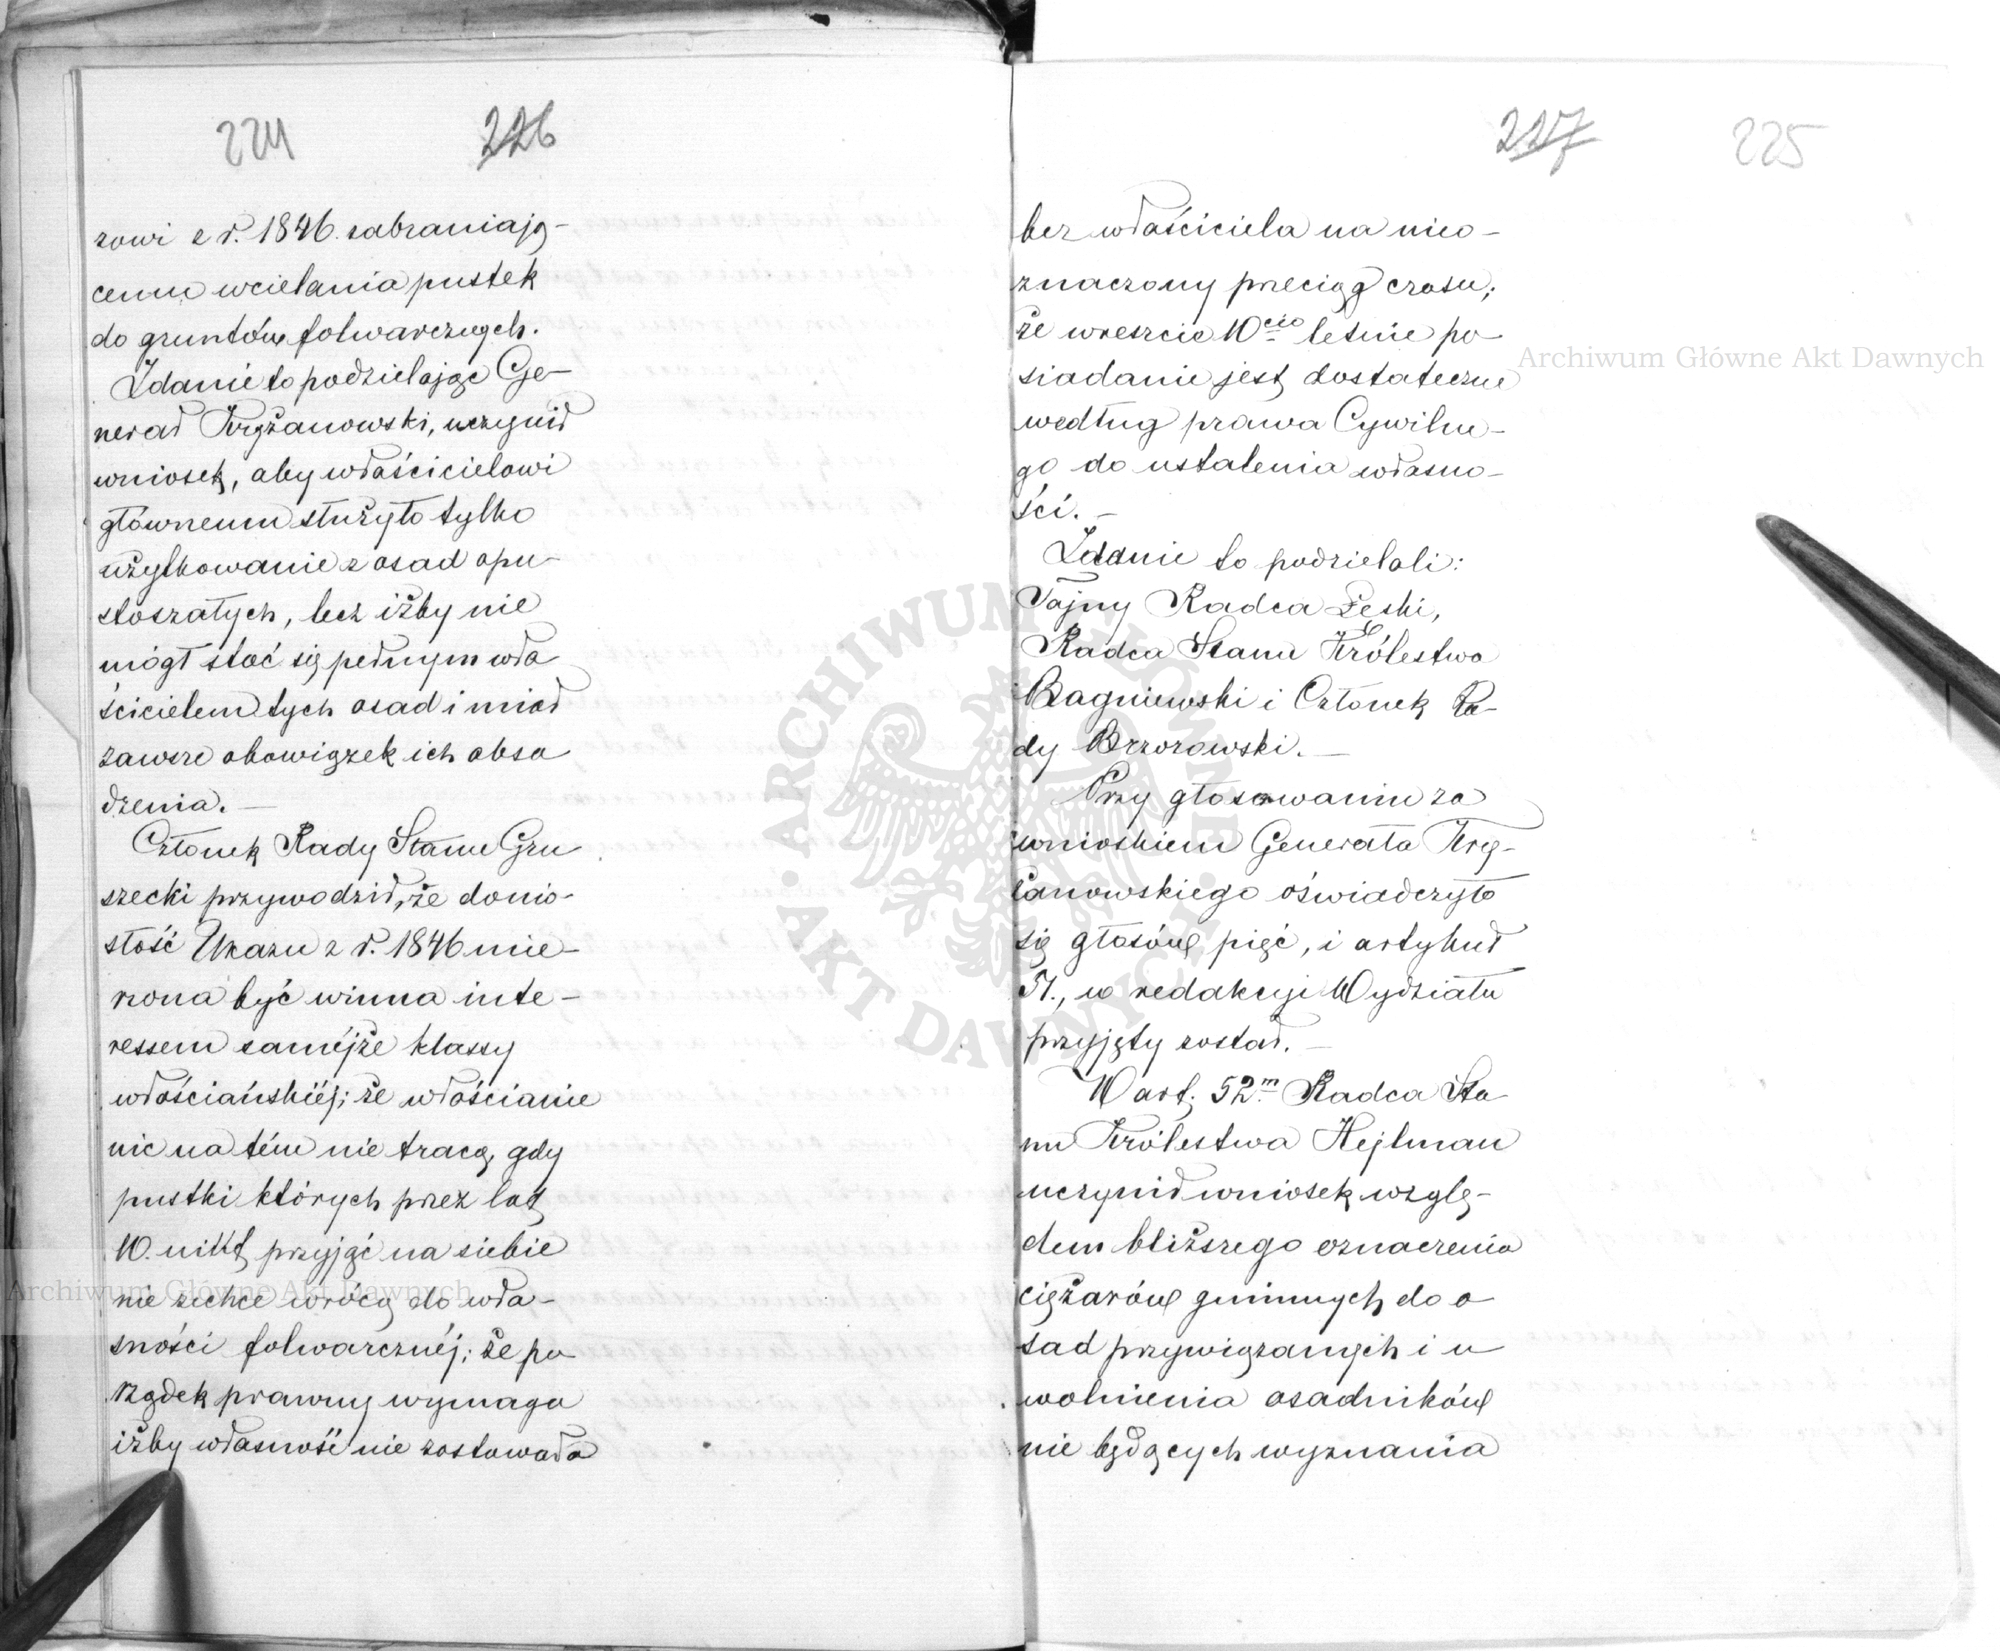 224 226
zowi z r. 1846 zabraniają-
cemu wcielania pustek
do gruntów folwarcznych.
Zdanie to podzielając Ge-
nerał Kryżanowski, uczynił
wniosek, aby właścicielowi
głównemu służyło tylko
użytkowanie z osad opu-
stoszałych, lecz iżby nie
mógł stać się pełnym wła
ścicielem tych osad i miał
zawsze obowiązek ich obsa
dzenia. —
Członek Rady Stanu Gru
szecki przywodził, że donio-
słość Ukazu z r. 1846 mie-
rzona być winna inte-
ressem samejże klassy
włościańskiéj; że włościanie
nic na tém nie tracą, gdy
pustki których przez lat
10. nikt przyjąć na siebie
nie zechce wrócą do wła-
sności folwarcznéj; że po
rządek prawny wymaga
iżby własność nie zostawała
227 225
bez właściciela na nieo-
znaczony przeciąg czasu;
że wreszcie 10cio letnie po
siadanie jest dostateczne
według prawa Cywilne-
go do ustalenia własno-
ści. —
Zdanie to podzielali:
Tajny Radca Łęski,
Radca Stanu Królestwa
Bagniewski i Członek Ra-
dy Brzozowski. —
Przy głosowaniu za
wnioskiem Generała Kry-
żanowskiego oświadczyło
się głosów pięć, i artykuł
51., w redakcyi Wydziału
przyjęty został. —
W art. 52m Radca Sta
nu Królestwa Hejlman
uczynił wniosek wzglę-
dem bliższego oznaczenia
ciężarów gminnych do o
sad przywiązanych i u
wolnienia osadników
nie będących wyznania
ARCHIWUM GŁÓWNE AKT DAWNYCH
Archiwum Główne Akt Dawnych
Archiwum Główne Akt Dawnych